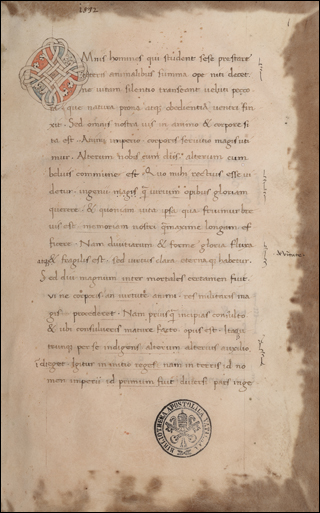 Mnis homines qui student sese prestare
ceteris animalibus summa ope niti decet
ne uitam silentio transeant ueluti peco
ra que natura prona atq; obedientia uentri fin
xit. Sed omnis nostra uis in animo & corpore si
ta est. Animi imperio corporis seruitio magis uti
mur. Alterum nobis cum diis alterum cum
beluis commune est. Quo mihi rectius esse ui
detur ingenii magis q̃ uirium opibus gloriam
querere. & quoniam uita ipsa qua fruimur bre
uis est. memoriam nostri q̃ maxime longam ef
ficere. Nam diuitiarum & forme gloria fluxa
atq; fragilis est. sed uirtus clara eternaq; habetur.
Sed diu magnum inter mortales certamen fuit
ui ne corporis an uirtute animi. res militaris ma
gis procederet. Nam priusq̃ incipias consulto
& ubi consulueris mature facto opus est. Itaq;
utrunq; per se indigens alterum alterius auxilio
īdiget. Igitur in initio reges nam in terris id no
men imperii primum fuit diuersi pars inge
BIBLIOTHECA APOSTOLICA VATICANA